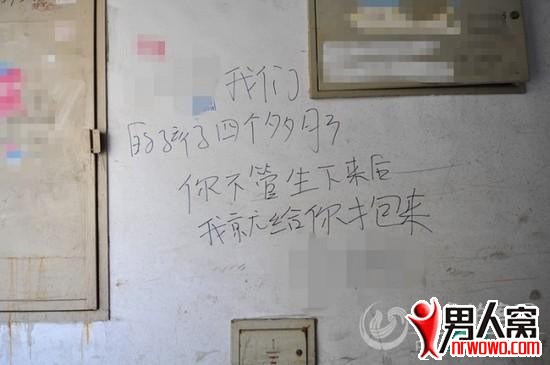 我们
的孩子四个多月了
你不管生下来后
我就给你抱来
男人窝
nrwowo.com